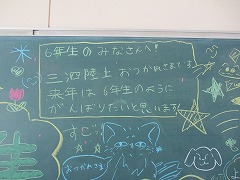 6年生のみなさんへ!
三泗陸上おつかれさまです。
来年は6年生のように
がんばりたいと思います!
すご
おつかれさま